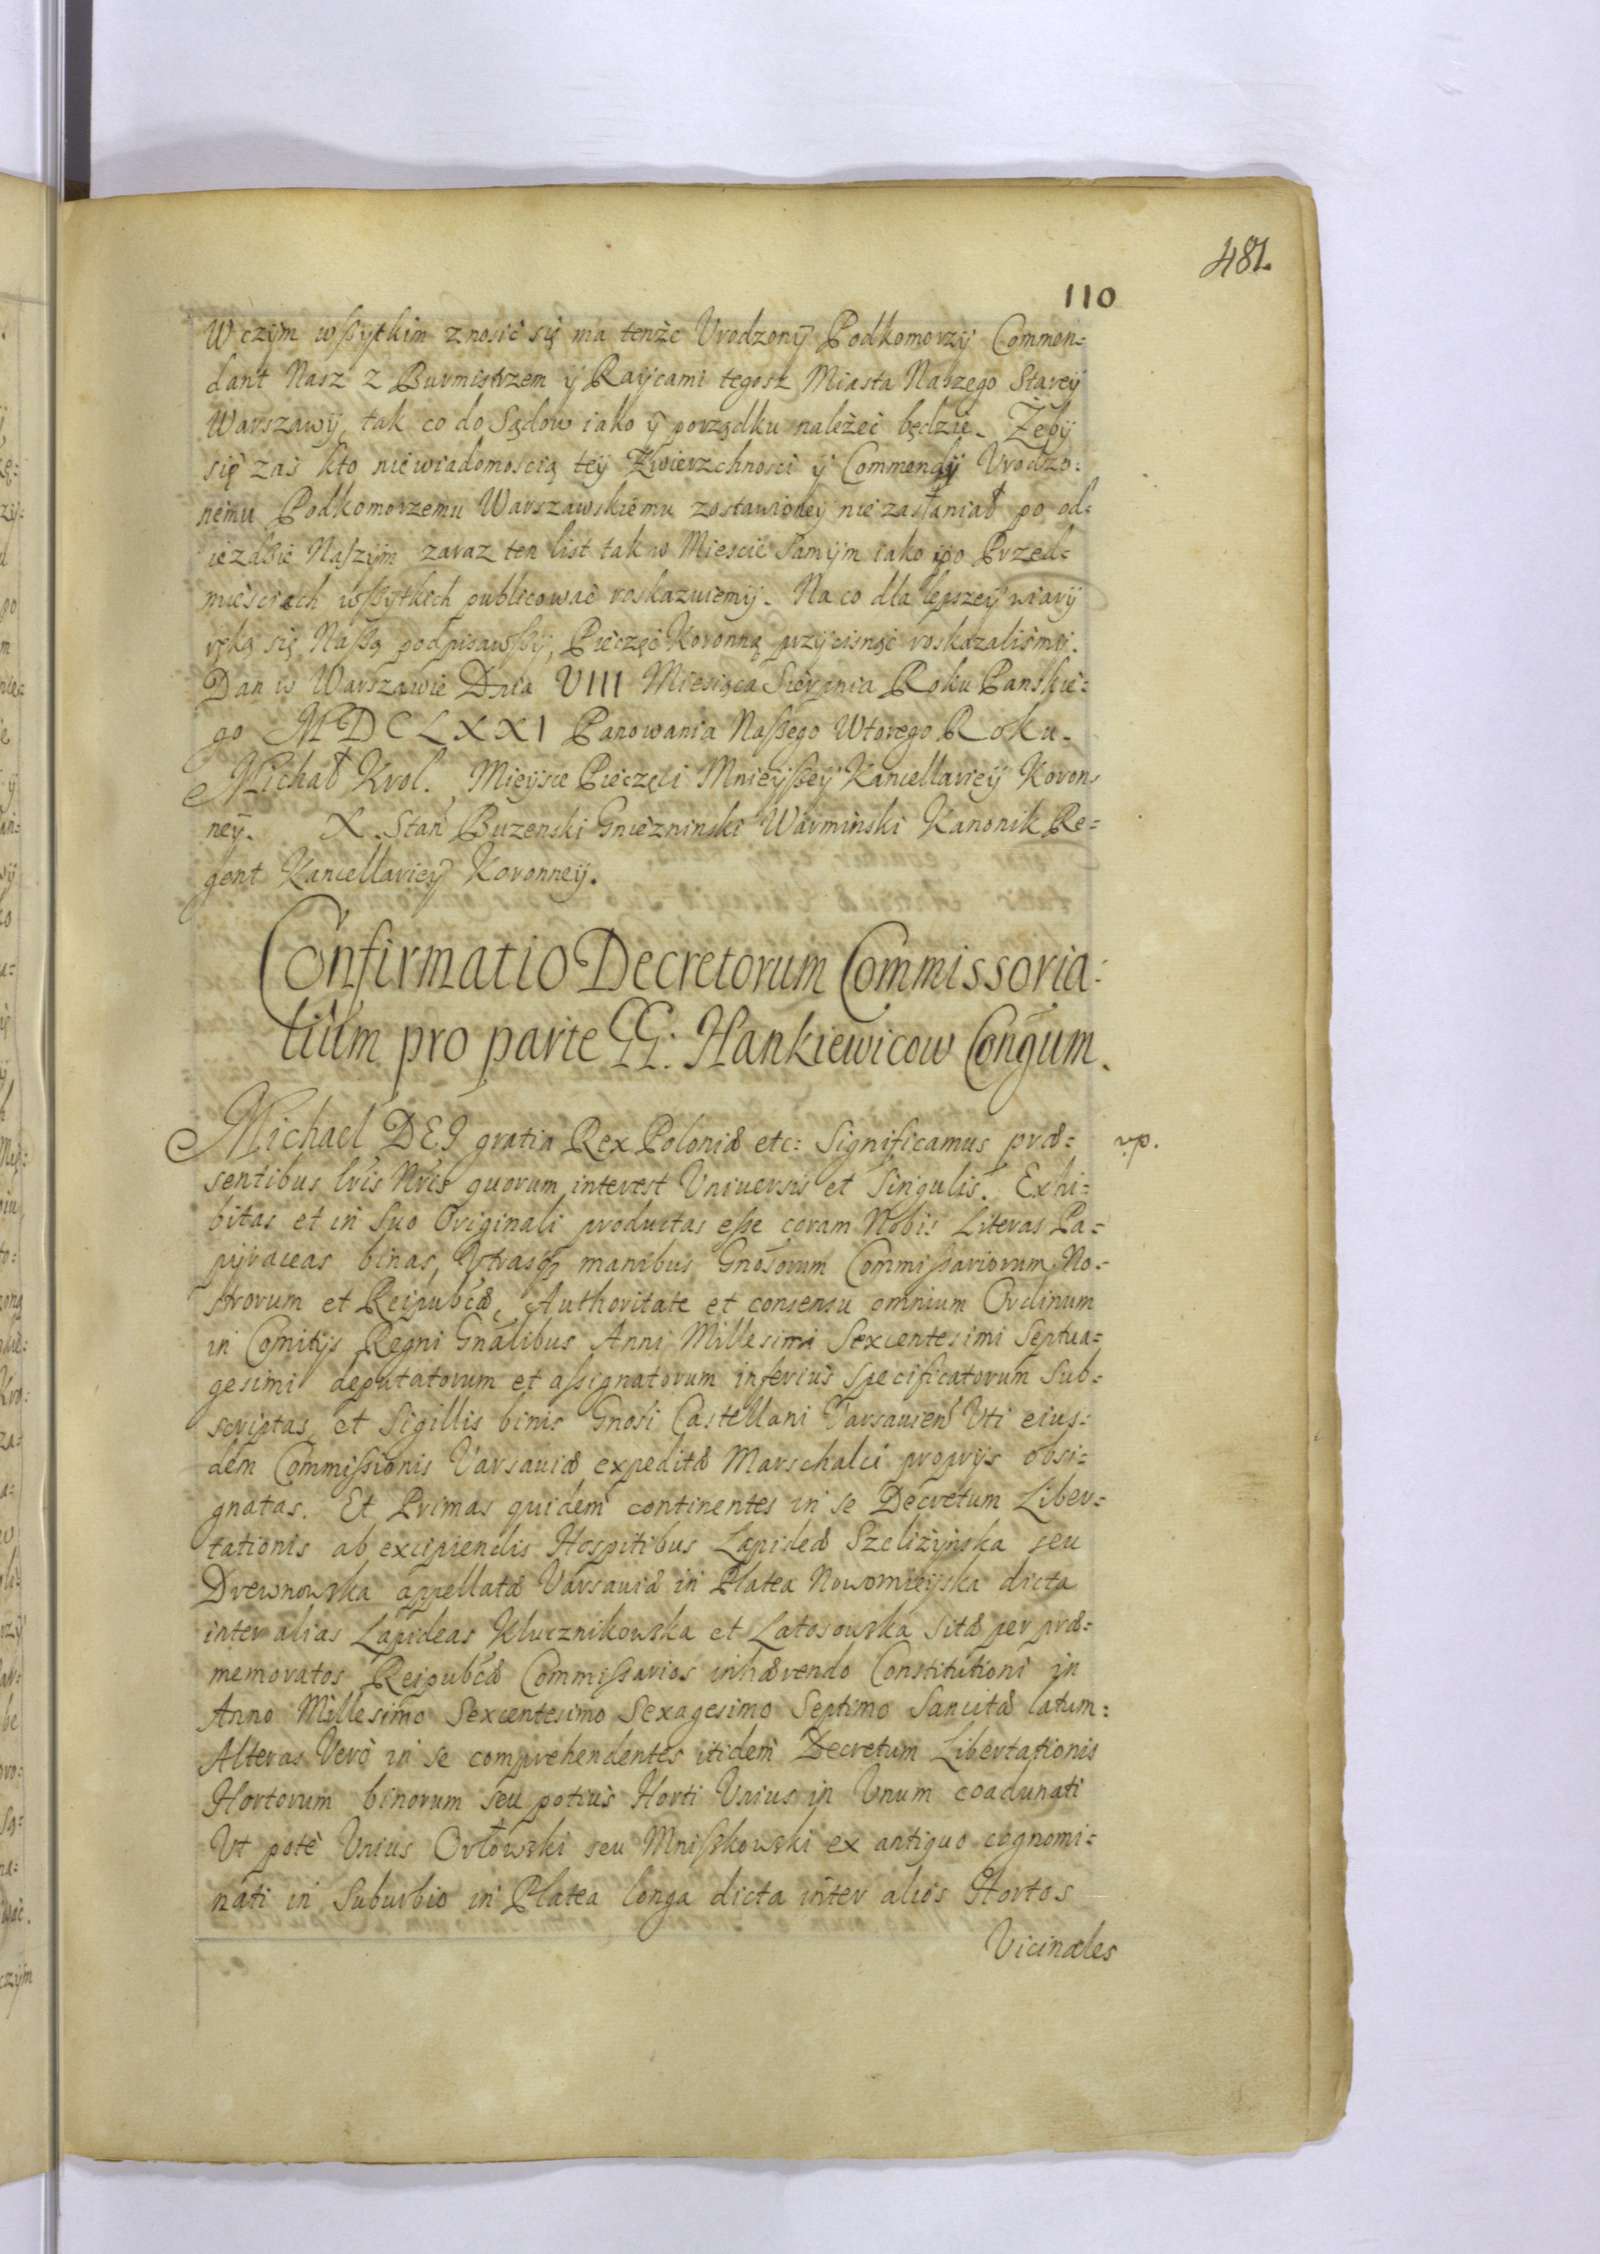 481.
110
W czÿm wßÿtkim znosić się ma tenże Vrodzonÿ Podkomorzÿ Commen=
dant Nasz z Burmistrzem ÿ Raÿcami tegosz Miasta Naszego Stareÿ
Warszawÿ, tak co do Sądow iako ÿ porządku należeć będzie. Żebÿ
się zaś kto niewiadomoscią teÿ Zwierzchnosci ÿ Commendÿ Vrodzo=
nemu Podkomorzemu Warszawskiemu zostawioneÿ nie zasłaniał po od=
iezdzie Naszÿm zaraz ten list tak w Miescie samÿm iako ÿ po Przed=
miesciach wßÿtkich publicować roskazuiemÿ. Na co dla lepszeÿ wiarÿ
ręką się Naßą podpisawßÿ, Pieczęć Koronną przÿcisnąć roskazalismÿ.
Dan w Warszawie Dnia VIII Miesiąca Sierpnia Roku Panskie=
go MDCLXXI Panowania Naßego Wtorego Roku.
Michał Krol. Mieÿsce Pieczęci Mnieÿßeÿ Kancellarieÿ Koron=
neÿ. X. Stan Buzenski Gniezninski Warminski Kanonik Re=
gent Kancellarieÿ Koronneÿ.
Confirmatio Decretorum Commissoria=
lium pro parte GG: Hankiewicow Congum.
Michael DEI gratia Rex Poloniæ etc: Significamus præ= rp.
sentibus lris Nris quorum interest Vniuersis et Singulis. Exhi=
bitas et in suo Originali productas eße coram Nobis Literas Pa=
pÿraceas binas, Vtrasq3 manibus Gnosorum Commißariorum No=
strorum et Reipubcæ, Authoritate et consensu omnium Ordinum
in Comitÿs Regni Gnalibus Anni Millesimi Sexcentesimi Septua=
gesimi deputatorum et aßignatorum inferius specificatorum Sub=
scriptas, et Sigillis binis Gnosi Castellani Varsauien Vti eius=
dem Commißionis Varsauiæ expeditæ Marschalci proprÿs obsi=
gnatas. Et Primas quidem continentes in se Decretum Liber=
tationis ab excipiendis Hospitibus Lapideæ Szeliżÿńska seu
Drewnowska appellatæ Varsauiæ in Platea Nowomieÿska dicta
inter alias Lapideas Klucznikowska et Latosowska sitæ per præ=
memoratos Reipubcæ Commißarios inhærendo Constitutioni in
Anno Millesimo Sexcentesimo Sexagesimo Septimo Sancitæ latum:
Alteras Verò in se comprehendentes itidem Decretum Libertationis
Hortorum binorum seu potius Horti Vnius in Vnum coadunati
Vt potè Vnius Orłowski seu Mnißkowski ex antiquo cognomi=
nati in Suburbio in Platea longa dicta inter alios Hortos
Vicinales